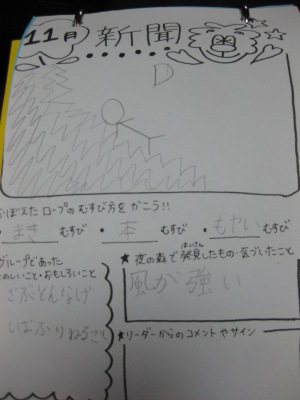 11月 新聞
おぼえた ロープの むすび方を かこう!!
・まき むすび ・本 むすび ・もやい むすび
グループであった
たのしいこと・おもしろいこと
ざぶとんなげ
★夜の森で発見したもの・気づいたこと
はっけん
風が強い
★リーダーからのコメントやサイン